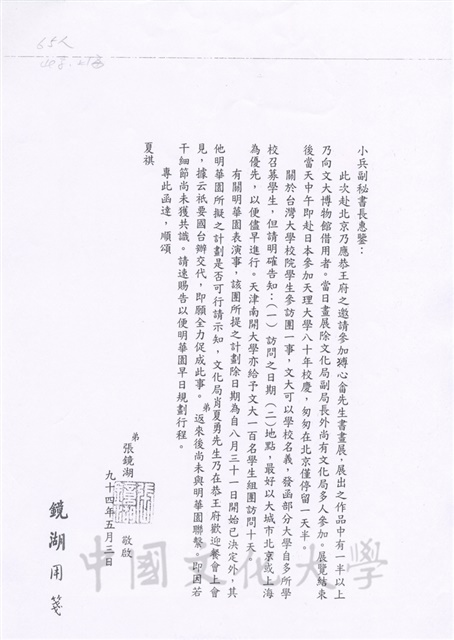 65人
小兵副秘書長惠鑒：
此次赴北京乃應恭王府之邀請參加溥心畬先生書畫展，展出之作品中有一半以上
乃向文大博物館借用者。當日畫展除文化局副局長外尚有文化局多人參加。展覽結束
後當天中午即赴日本參加天理大學八十年校慶，匆匆在北京僅停留一天半。
關於台灣大學校院學生參訪團一事，文大可以學校名義，發函部分大學自多所學
校召募學生，但請明確告知：(一) 訪問之日期 (二)地點，最好以大城市北京或上海
為優先，以便儘早進行。天津南開大學亦給予文大一百名學生組團訪問十天。
有關明華園表演事，該團所提之計劃除日期為自八月三十一日開始已決定外，其
他明華園所擬之計劃是否可行請示知，文化局肖夏勇先生乃在恭王府歡迎餐會上會
見，據云祇要國台辦交代，即願全力促成此事。弟返來後尚未與明華園聯繫，即因若
干細節尚未獲共識。請速賜告以便明華園早日規劃行程。
專此函達，順頌
夏祺
弟
張鏡湖
敬啟
九十四年五月三日
鏡湖用箋
中國文化大學